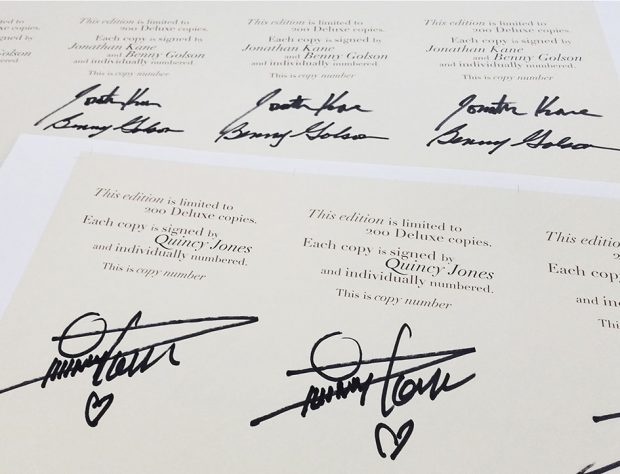 This edition is limited to
200 Deluxe copies.
Each copy is signed by
Jonathan Kane
and Benny Golson
and individually numbered.
This is copy number
Benny Golson
This edition is limited to
200 Deluxe copies.
Each copy is signed by
Jonathan Kane
and Benny Golson
and individually numbered.
This is copy number
Benny Golson
This edition is limited to
200 Deluxe copies.
Each copy is signed by
Jonathan Kane
and Benny Golson
and individually numbered.
This is copy number
Benny Golson
This edition is limited to
200 Deluxe copies.
Each copy is signed by
Quincy Jones
and individually numbered.
This is copy number
This edition is limited to
200 Deluxe copies.
Each copy is signed by
Quincy Jones
and individually numbered.
This is copy number
This edition is
Each cop
and